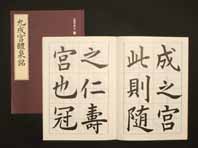 九成宮醴泉銘
成之宮
此則隨
之仁壽
宮也冠